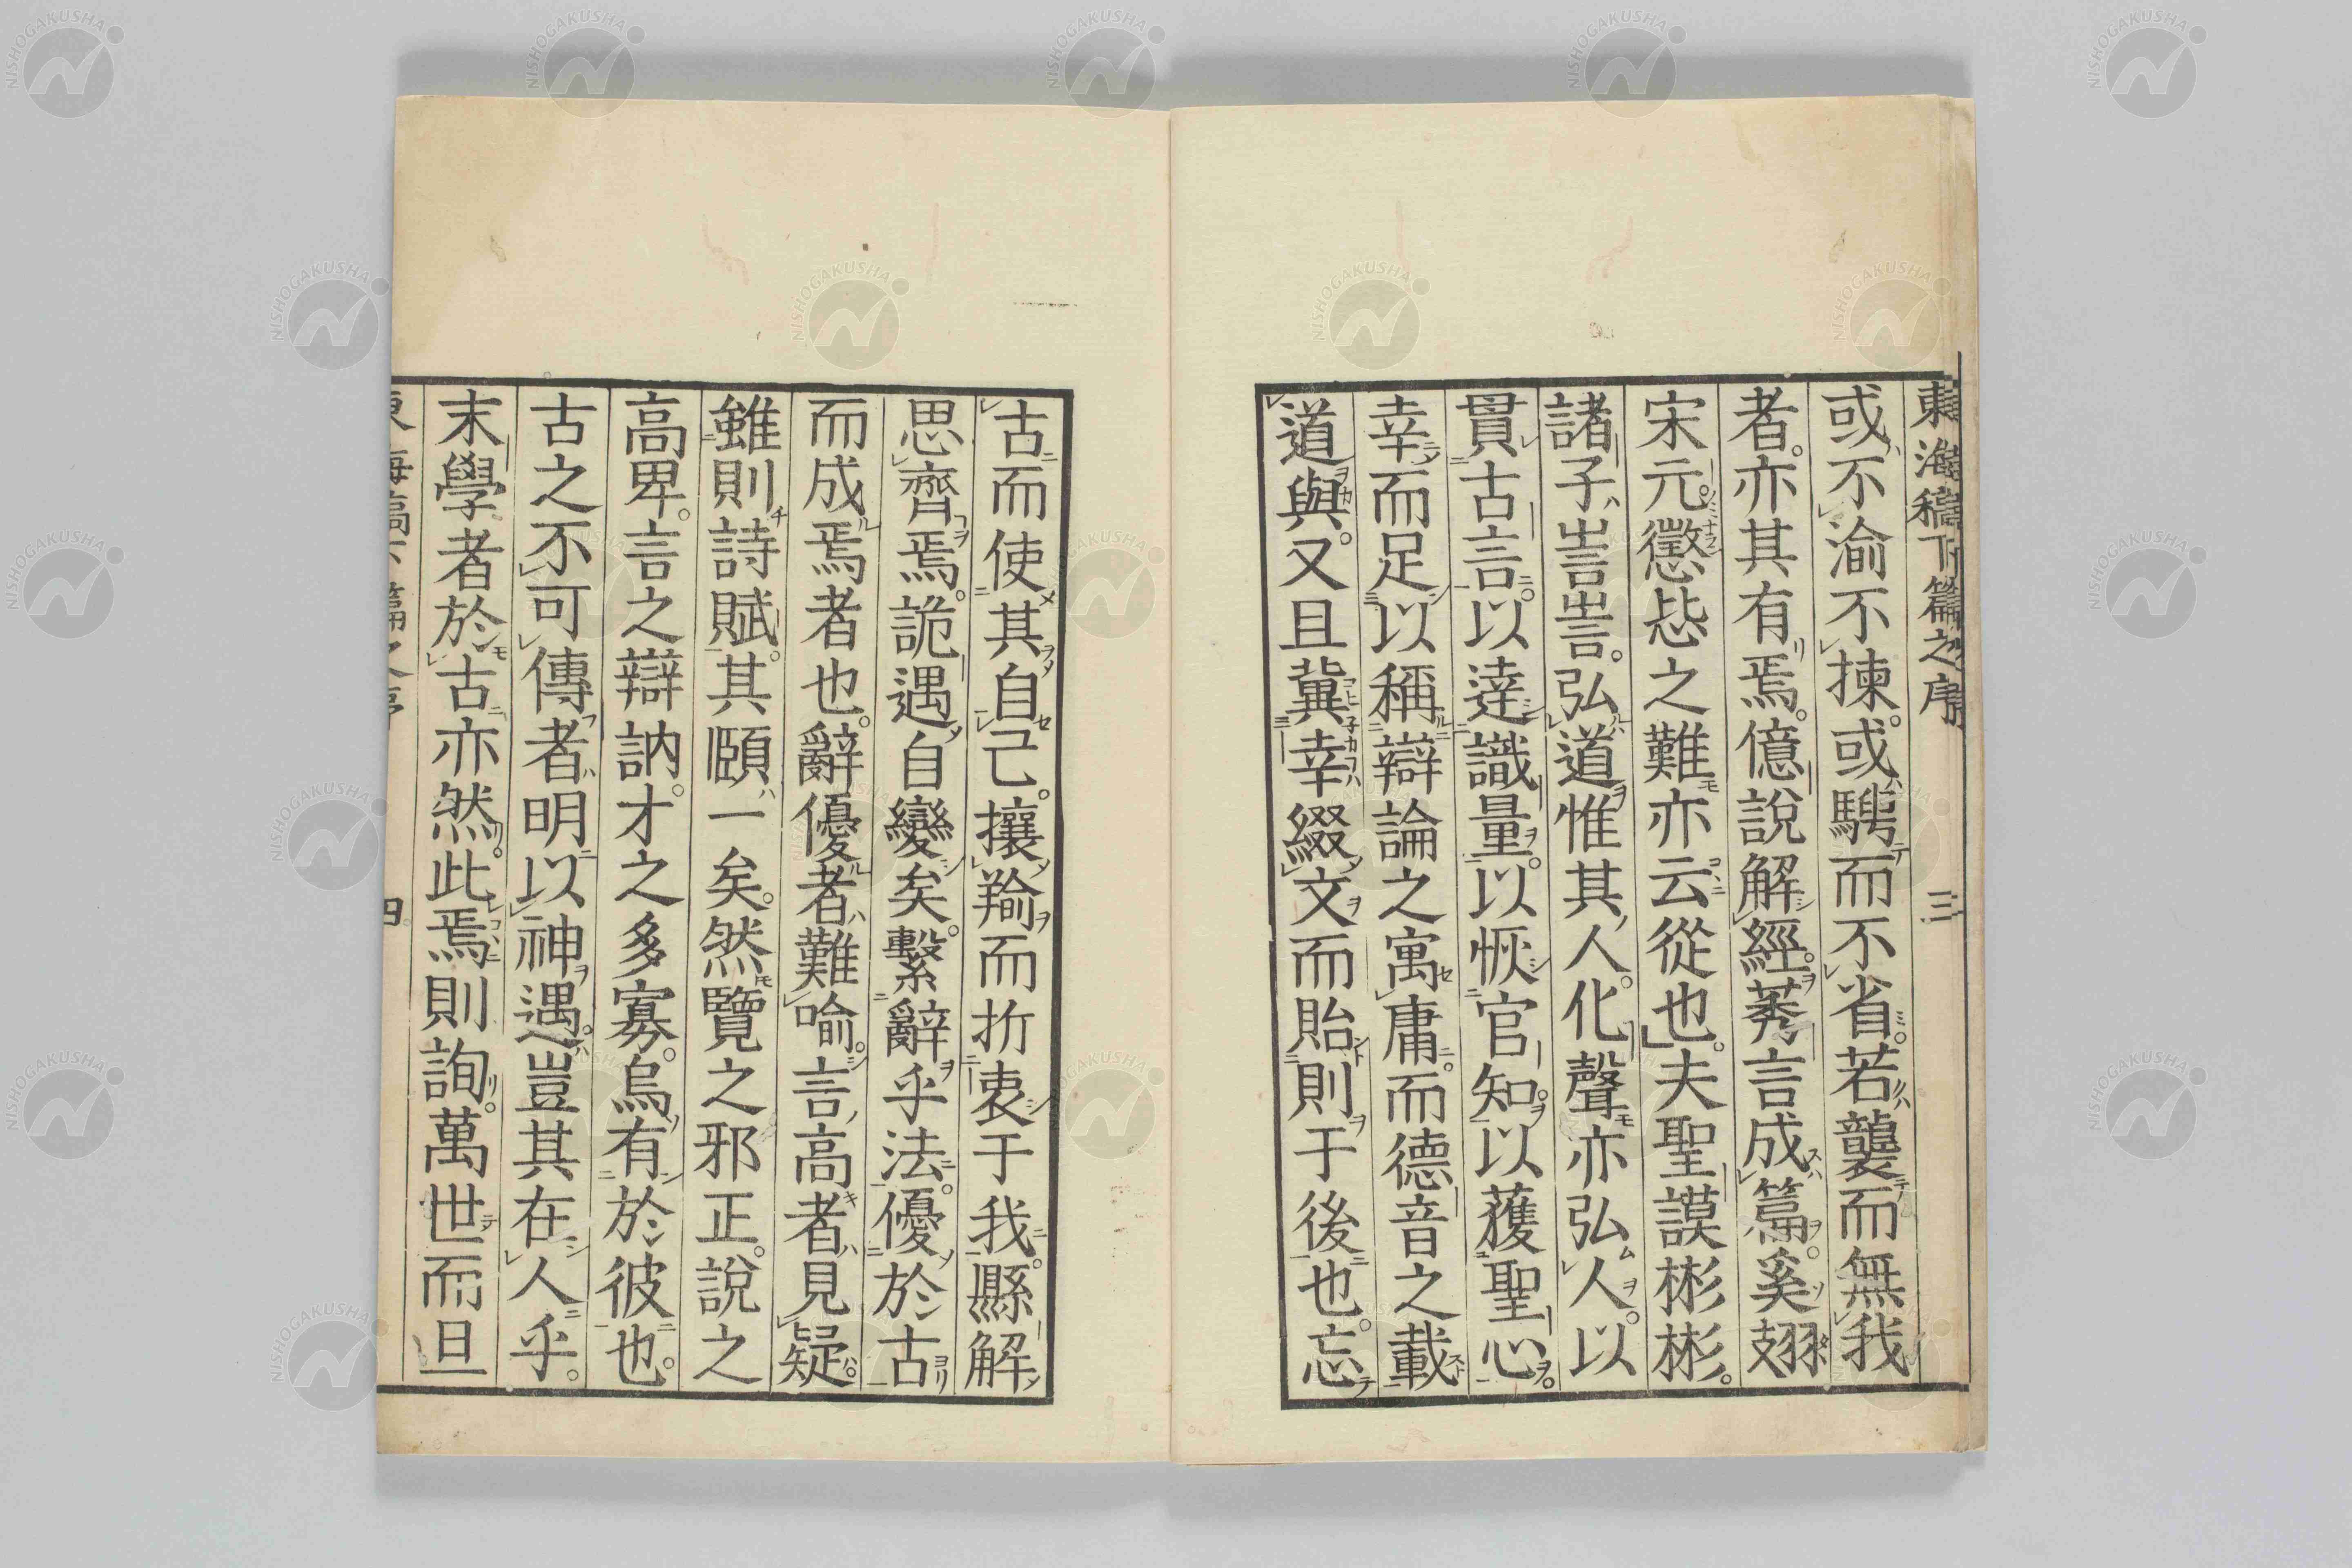 東海稿下篇之序 三
或不渝不揀。或騁而不省。若襲而無我
者。亦其有焉。億說解經。莠言成篇。奚翅
宋元。懲毖之難亦云從也。夫聖謨彬彬。
諸子訔訔。弘道惟其人。化聲亦弘人。以
貫古言。以達識量。以恢官知。以蒦聖心。
幸而足以稱辯論之寓庸。而德音之載
道與。又且冀幸綴文而貽則于後也。忘
古而使其自己。攘羭而折衷于我。縣解
思齊焉。詭遇自變矣。繫辭乎法。優於古
而成焉者也。辭優者難喻。言高者見疑。
雖則詩賦。其頤一矣。然覽之邪正。說之
高卑。言之辯訥。才之多寡。烏有於彼也。
古之不可傳者。明以神遇。豈其在人乎。
末學者於古亦然。此焉則詢。萬世而旦
東海稿下篇之序 四